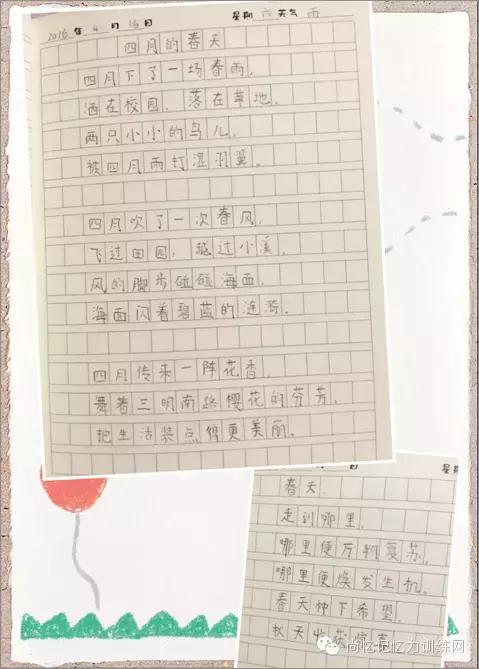 2016年4月16日 星期六天气雨
四月的春天
四月下了一场春雨，
洒在校园，落在草地。
两只小小的鸟儿，
被四月雨打湿羽翼。
四月吹了一次春风，
飞过田园，越过小溪。
风的脚步碰碰海面，
海面闪着碧蓝的涟漪。
四月传来一阵花香，
舞着三明南路樱花的芬芳，
把生活装点得更美丽。
日 星期
春天，
走到哪里，
哪里便万物复苏，
哪里便焕发生机。
春天种下希望，
秋天收获
尚忆记忆力训练网